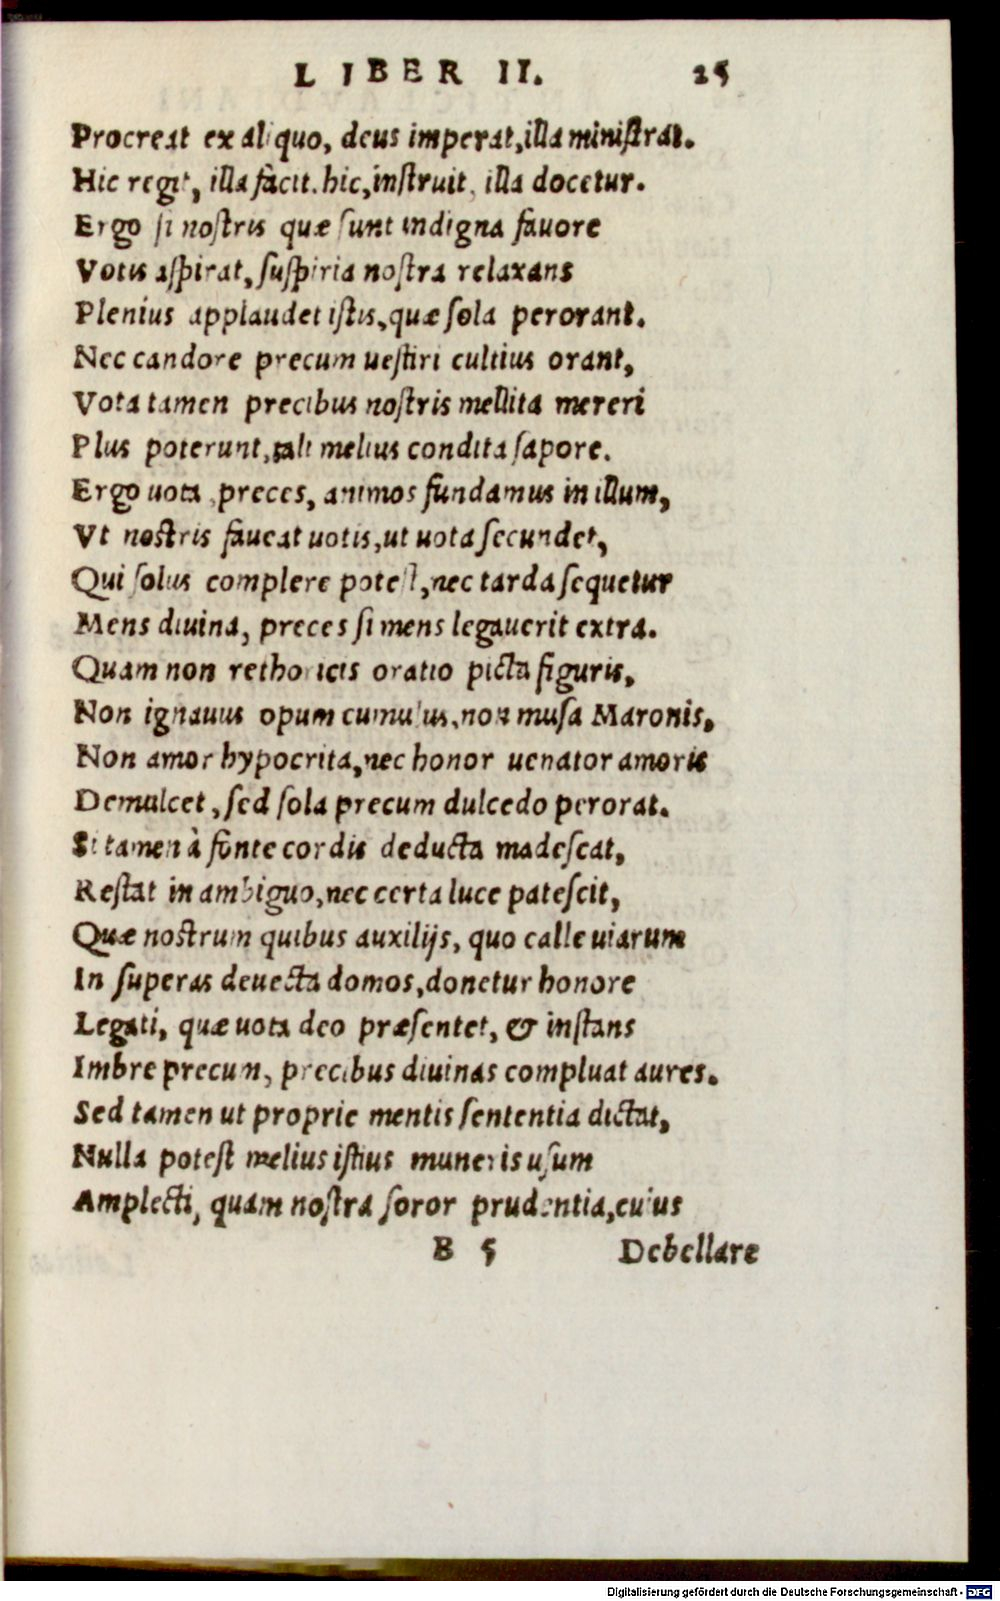 LIBER II. 25
Procreat ex aliquo, deus imperat, illa ministrat.
Hic regit, illa facit. hic, instruit, illa docetur.
Ergo si nostris quæ sunt indigna fauore
Votis aspirat, suspiria nostra relaxans
Plenius applaudet istis, quæ sola perorant.
Nec candore precum uestiri cultius orant,
Vota tamen precibus nostris mellita mereri
Plus poterunt, tali melius condita sapore.
Ergo uota, preces, animos fundamus in illum,
Vt nostris faueat uotis, ut uota secundet,
Qui solus complere potest, nec tarda sequetur
Mens diuina, preces si mens legauerit extra.
Quam non rethoricis oratio picta figuris,
Non ignauus opum cumulus, non musa Maronis,
Non amor hypocrita, nec honor uenator amoris
Demulcet, sed sola precum dulcedo perorat.
Si tamen à fonte cordis deducta madescat,
Restat in ambiguo, nec certa luce patescit,
Quæ nostrum quibus auxilijs, quo calle uiarum
In superas deuecta domos, donetur honore
Legati, quæ uota deo præsentet, & instans
Imbre precum, precibus diuinas compluat aures.
Sed tamen ut proprie mentis sententia dictat,
Nulla potest melius istius muneris usum
Amplecti, quam nostra soror prudentia, cuius
B 5 Debellare
Digitalisierung gefördert durch die Deutsche Forschungsgemeinschaft - DFG